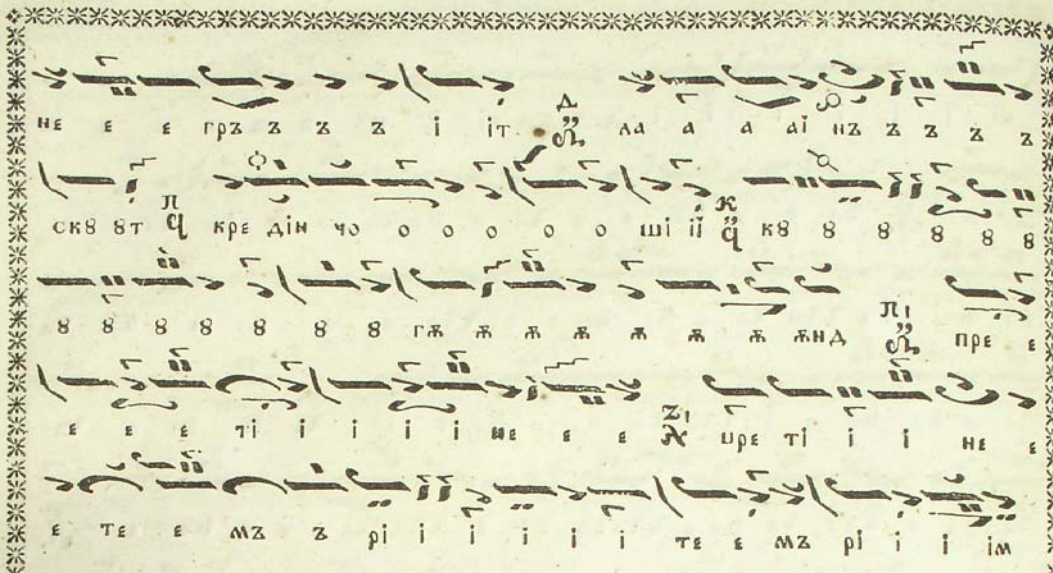 не е е гръ ъ ъ ъ і іт Д ла а а аі нъ ъ ъ ъ ъ ъ
скȣ ȣт П кре дін чо о о о о о ші її К кȣ ȣ ȣ ȣ ȣ ȣ ȣ
ȣ ȣ ȣ ȣ ȣ ȣ ȣ гѫ ѫ ѫ ѫ ѫ ѫ ѫ ѫнд П пре е
е е е ті і і і і і не е е Z пре ті і і не е
е те е мъ ъ рі і і і і і те е мъ рі і і ім